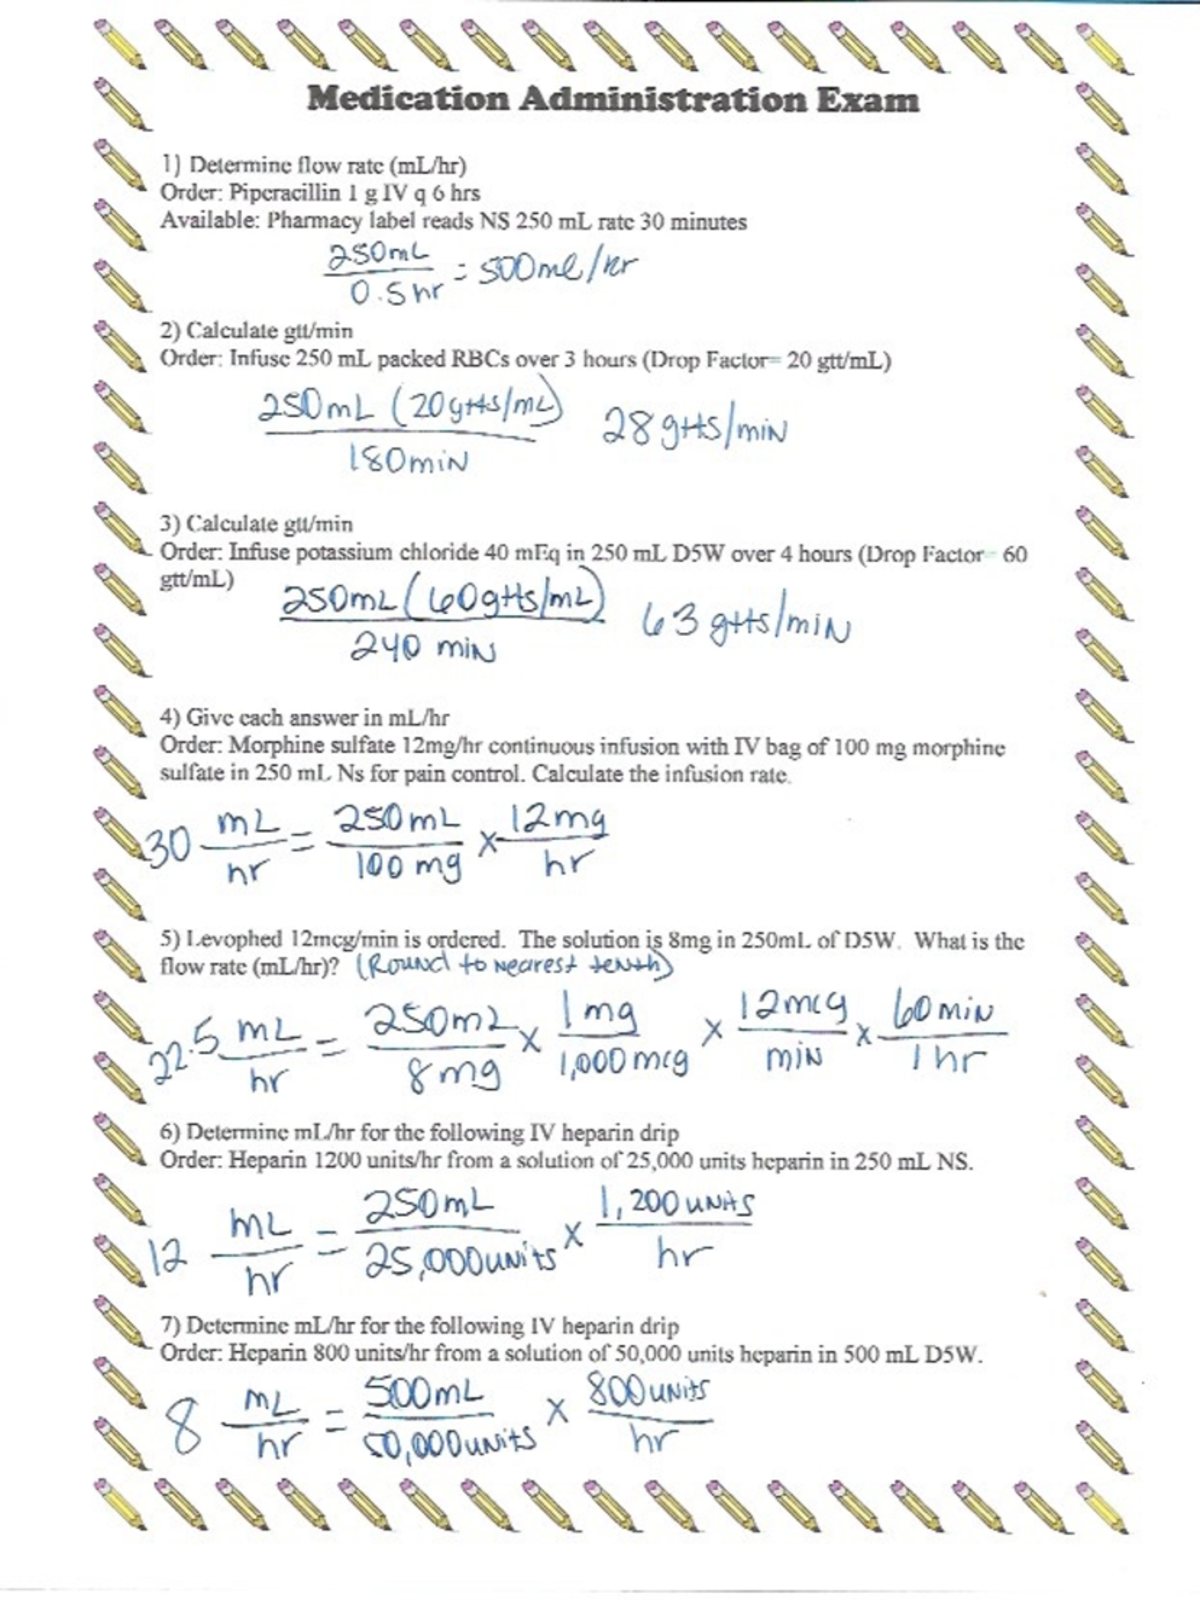 Medication Administration Exam
1) Determine flow rate (mL/hr)
Order: Piperacillin 1 g IV q 6 hrs
Available: Pharmacy label reads NS 250 mL rate 30 minutes
250mL / 0.5 hr = 500ml/hr
2) Calculate gtt/min
Order: Infuse 250 mL packed RBCs over 3 hours (Drop Factor= 20 gtt/mL)
250mL (20gtts/mL) / 180min 28 gtts/min
3) Calculate gtt/min
Order: Infuse potassium chloride 40 mEq in 250 mL D5W over 4 hours (Drop Factor= 60
gtt/mL)
250mL (60gtts/mL) / 240 min 63 gtts/min
4) Give each answer in mL/hr
Order: Morphine sulfate 12mg/hr continuous infusion with IV bag of 100 mg morphine
sulfate in 250 mL Ns for pain control. Calculate the infusion rate.
30 mL/hr = 250mL/100 mg x 12mg/hr
5) Levophed 12mcg/min is ordered. The solution is 8mg in 250mL of D5W. What is the
flow rate (mL/hr)? (Round to nearest tenth)
22.5 mL/hr = 250mL/8mg x 1mg/1,000mcg x 12mcg/min x 60min/1hr
6) Determine mL/hr for the following IV heparin drip
Order: Heparin 1200 units/hr from a solution of 25,000 units heparin in 250 mL NS.
12 mL/hr = 250mL/25,000units x 1,200units/hr
7) Determine mL/hr for the following IV heparin drip
Order: Heparin 800 units/hr from a solution of 50,000 units heparin in 500 mL D5W.
8 mL/hr = 500mL/50,000units x 800units/hr